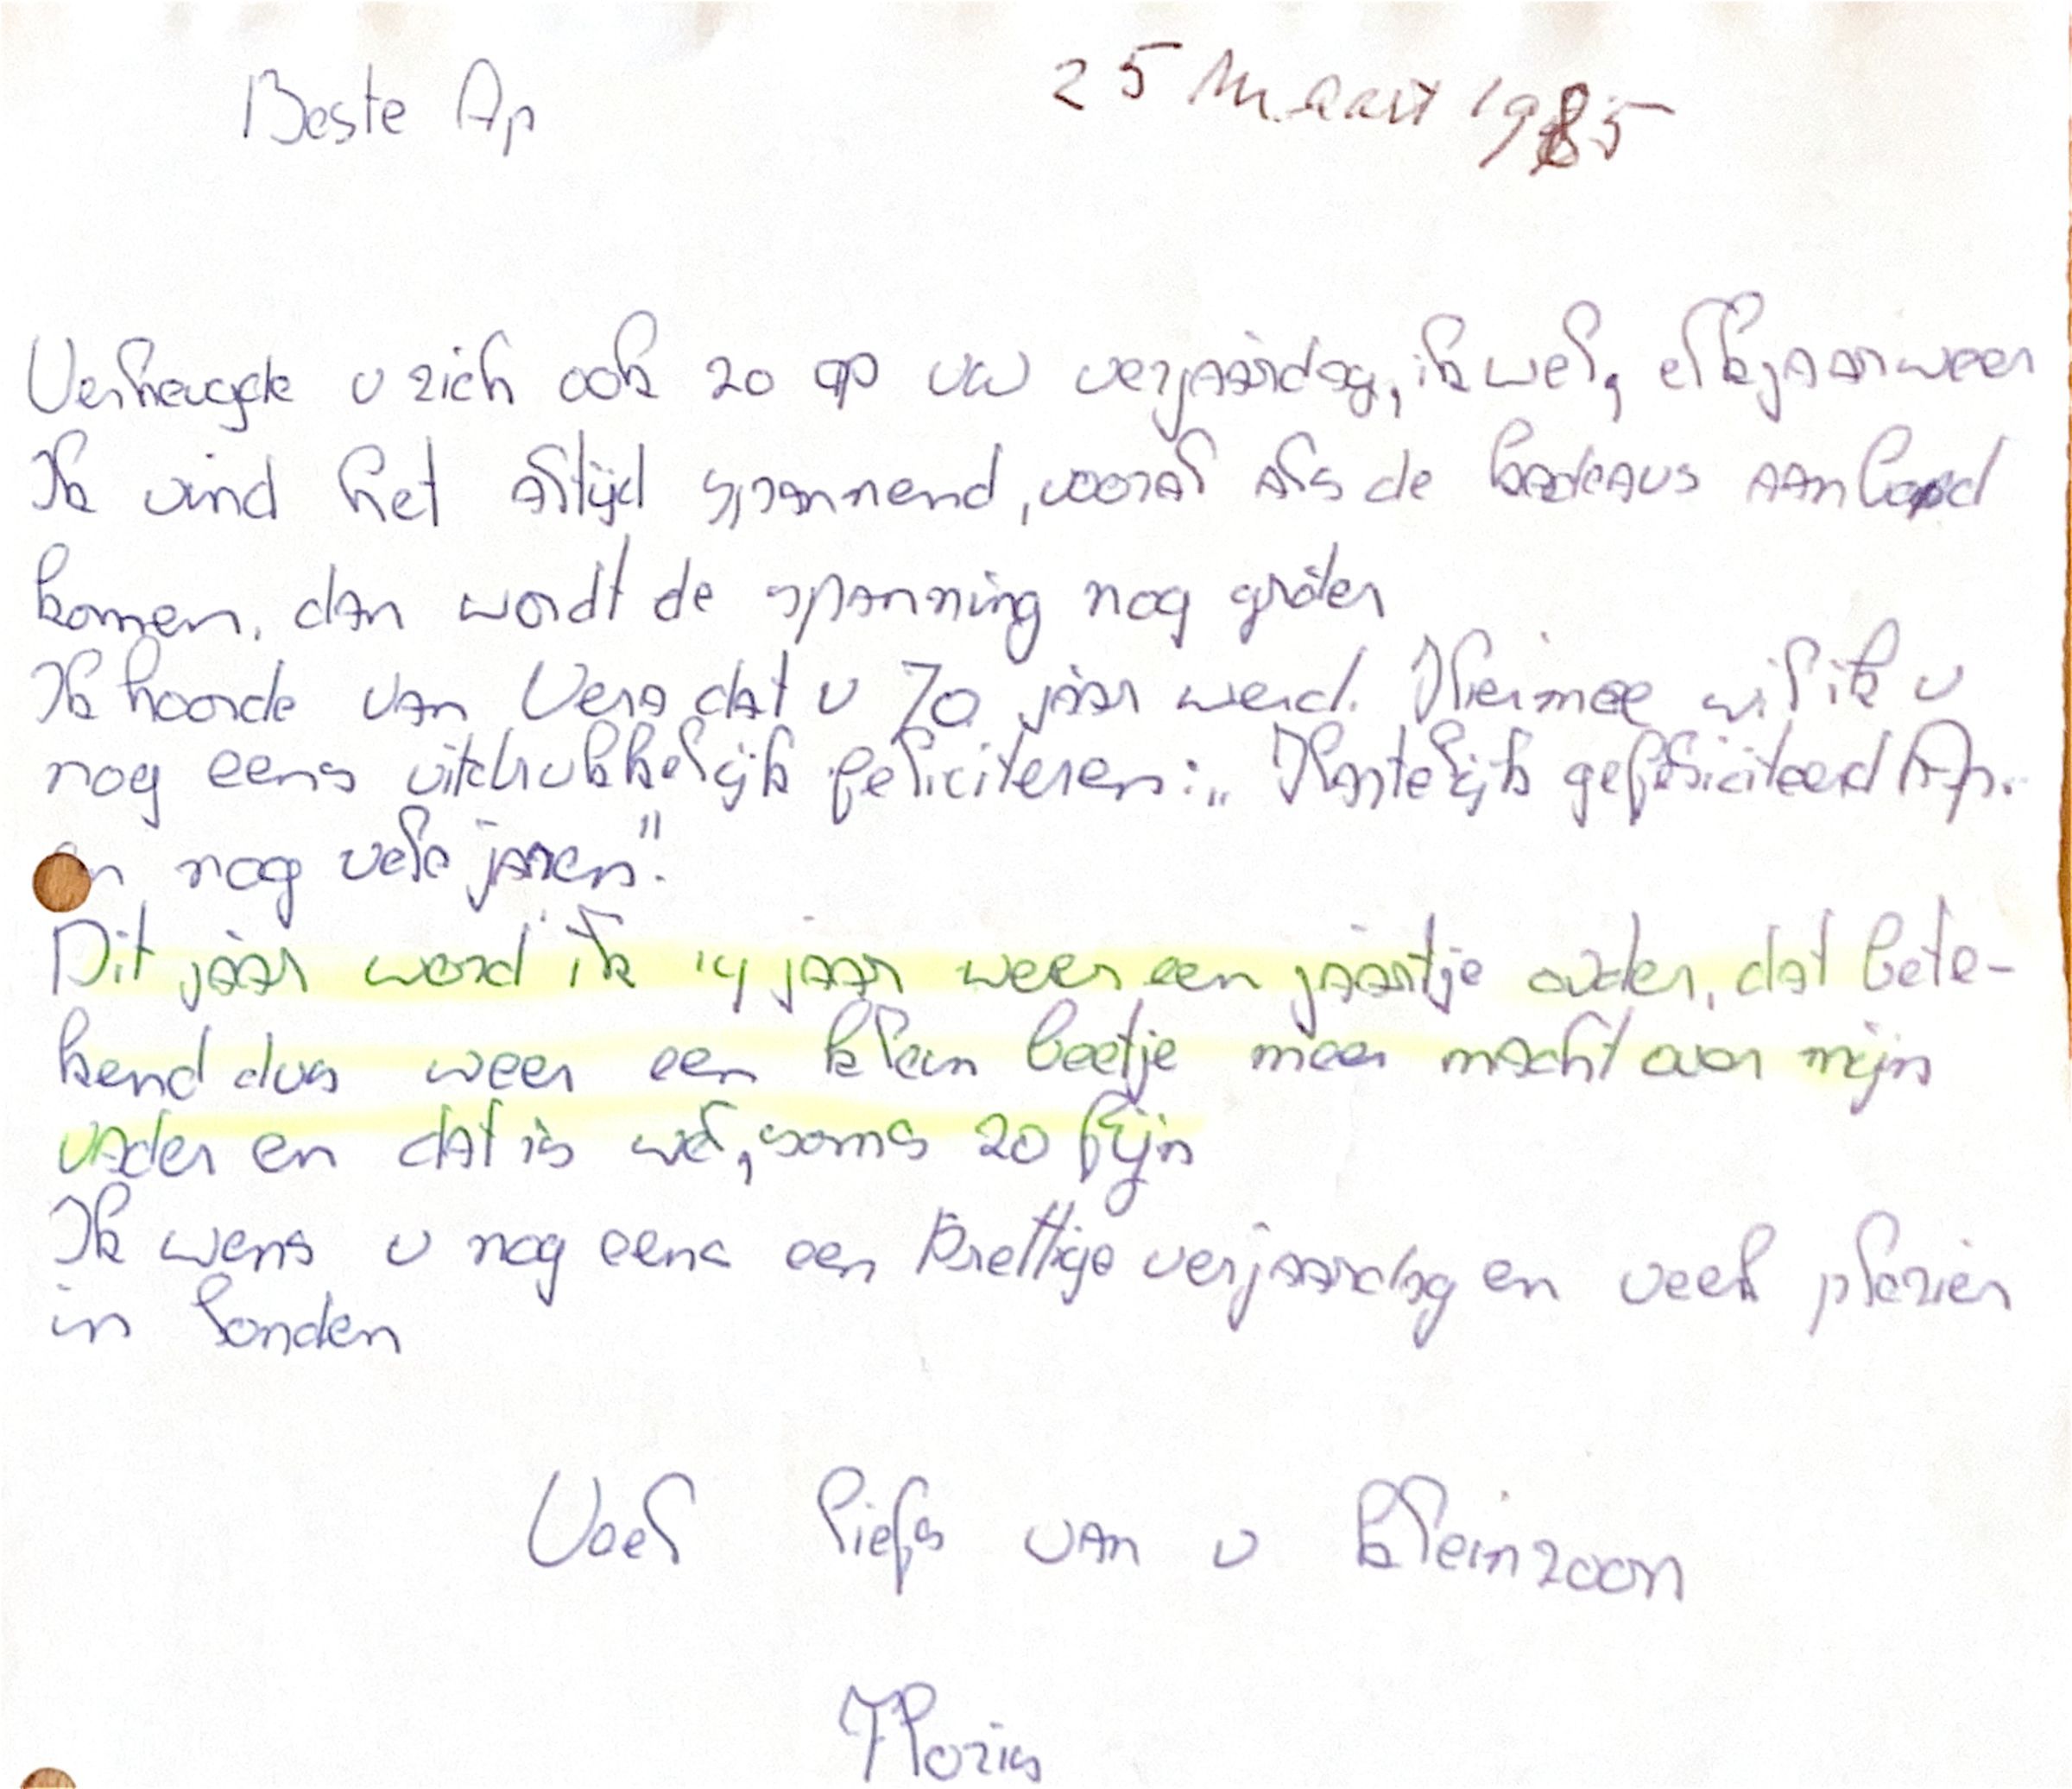 Beste Ap
25 Maart 1985
Verheugde u zich ook zo op uw verjaardag, ik wel, elk jaar weer
Ik vind het altijd spannend, vooral als de kadeaus aan bod
komen, dan wordt de spanning nog groter
Ik hoorde van Vera dat u 70 jaar werd. Hiermee wil ik u
nog eens uitdrukkelijk feliciteren: „Hartelijk gefeliciteerd Ap.
en nog vele jaren".
Dit jaar word ik 14 jaar weer een jaartje ouder, dat bete-
kend dus weer een klein beetje meer macht over mijn
vader en dat is wel, soms zo fijn
Ik wens u nog eens een Prettige verjaardag en veel plezier
in Londen
Veel liefs van u kleinzoon
Floris